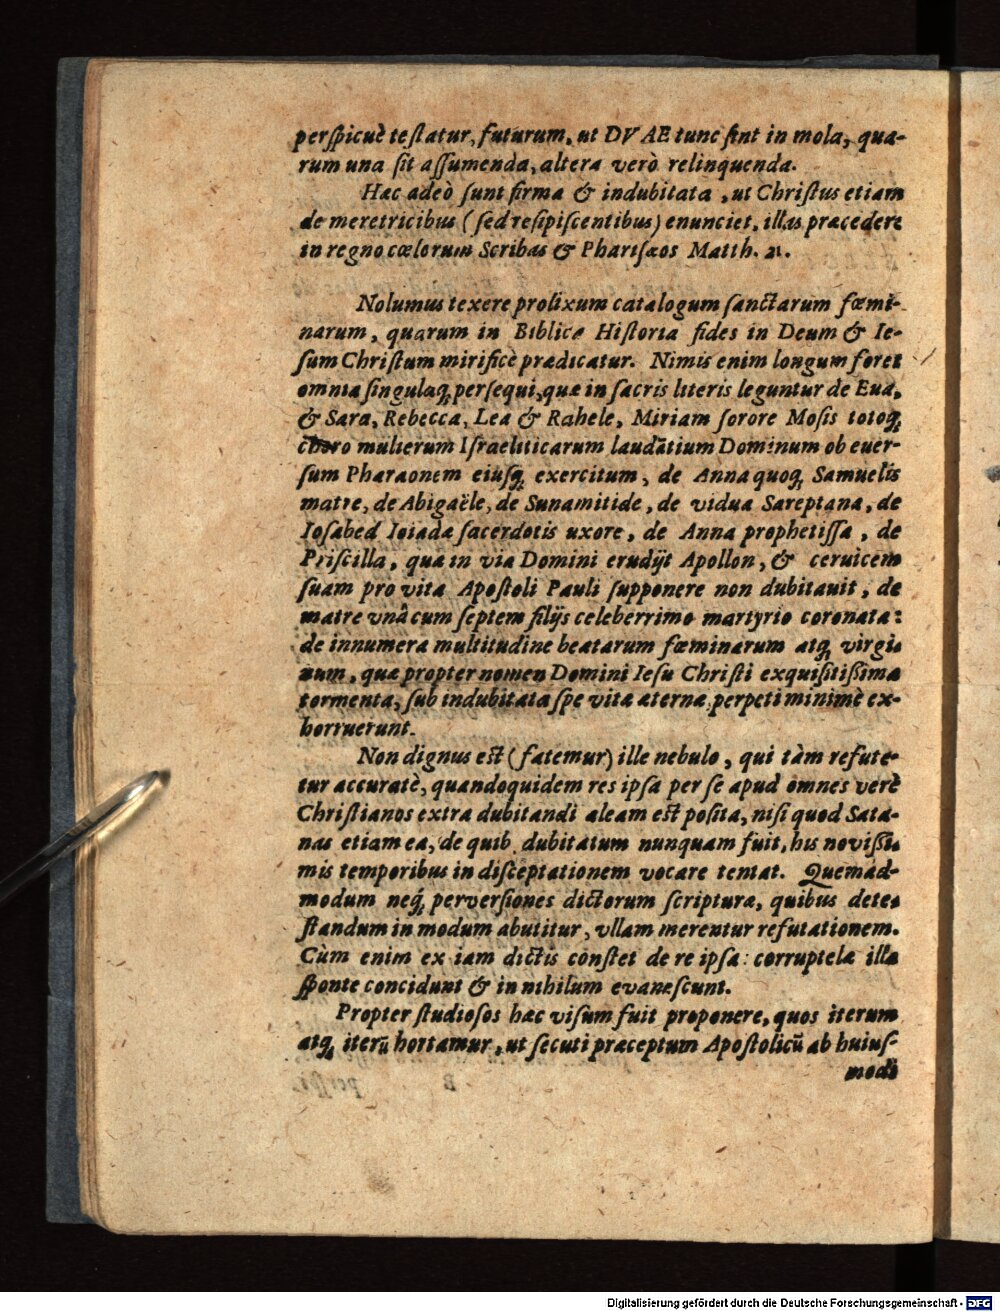 perspicuè testatur, futurum, ut DVAE tunc sint in mola, qua-
rum una sit assumenda, altera verò relinquenda.
Hæc adeò sunt firma & indubitata, ut Christus etiam
de meretricibus (sed resipiscentibus) enunciet, illas præcedere
in regno cœlorum Scribas & Pharisæos Matth. 21.
Nolumus texere prolixum catalogum sanctarum fœmi-
narum, quarum in Biblica Historia fides in Deum & Ie-
sum Christum mirificè prædicatur. Nimis enim longum foret
omnia singulaq; persequi, quæ in sacris literis leguntur de Eua,
& Sara, Rebecca, Lea & Rahele, Miriam sorore Mosis totoq;
choro mulierum Israeliticarum laudātium Dominum ob euer-
sum Pharaonem eiusq; exercitum, de Anna quoq; Samuelis
matre, de Abigaële, de Sunamitide, de vidua Sareptana, de
Iosabed Ioiadæ sacerdotis uxore, de Anna prophetissa, de
Priscilla, quæ in via Domini erudijt Apollon, & ceruicem
suam pro vita Apostoli Pauli supponere non dubitauit, de
matre vnâ cum septem filijs celeberrimo martyrio coronata:
de innumera multitudine beatarum fœminarum atq; virgi-
num, quæ propter nomen Domini Iesu Christi exquisitißima
tormenta, sub indubitata spe vitæ æternæ perpeti minimè ex-
horruerunt.
Non dignus est (fatemur) ille nebulo, qui tàm refute-
tur accuratè, quandoquidem res ipsa per se apud omnes verè
Christianos extra dubitandi aleam est posita, nisi quod Sata-
nas etiam ea, de quib. dubitatum nunquam fuit, his novißi-
mis temporibus in disceptationem vocare tentat. Quemad-
modum neq; perversiones dictorum scripturæ, quibus dete-
standum in modum abutitur, vllam merentur refutationem.
Cùm enim ex iam dictis constet de re ipsa: corruptelæ illæ
sponte concidunt & in nihilum evanescunt.
Propter studiosos hæc visum fuit proponere, quos iterum
atq; iterū hortamur, ut secuti præceptum Apostolicū ab huius-
modi
Digitalisierung gefördert durch die Deutsche Forschungsgemeinschaft - DFG